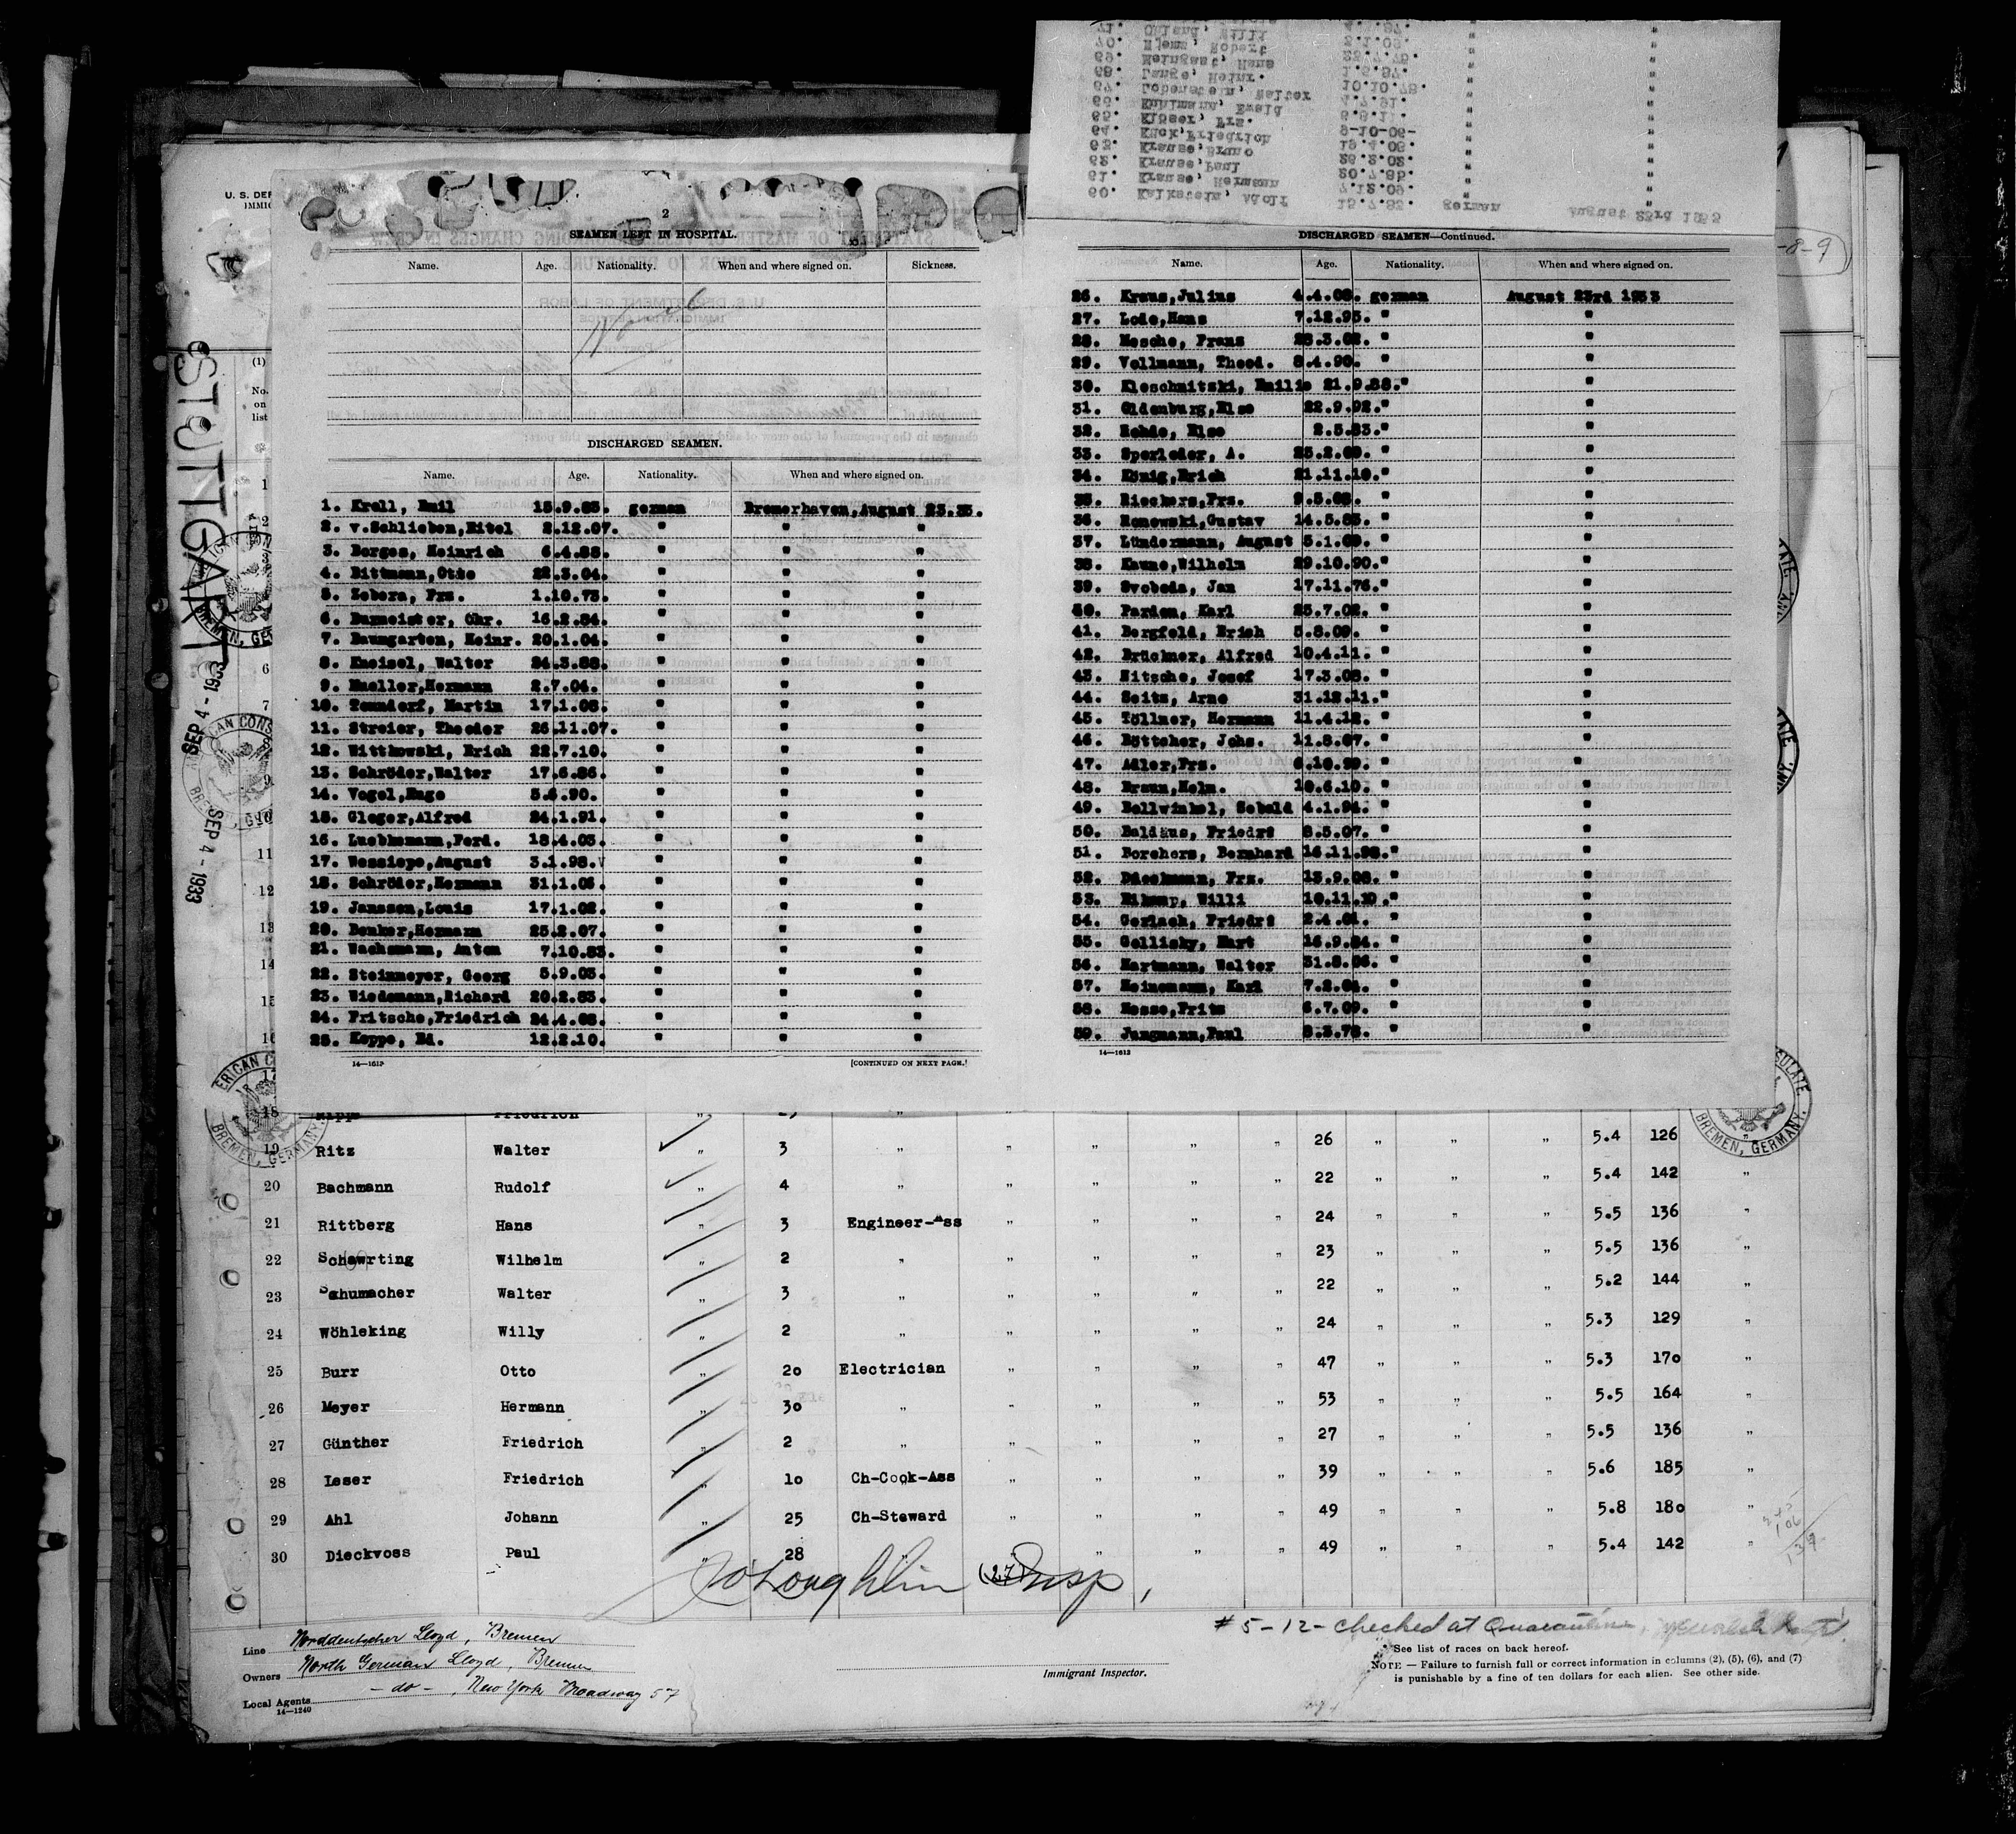 U. S. DEP
IMMIG
STUTTGART
SEP 4 - 1933
SEP 4 - 1933
2
SEAMEN LEFT IN HOSPITAL.
Name. Age. Nationality. When and where signed on. Sickness.
None
DISCHARGED SEAMEN.
Name. Age. Nationality. When and where signed on.
1. Krell, Emil 15.9.85. german Bremerhaven,August 23.33.
2. v.Schlieben,Eitel 2.12.07. " " "
3. Borges, Heinrich 6.4.88. " " "
4. Bittmann,Otto 22.3.04. " " "
5. Zebern, Frz. 1.10.73. " " "
6. Burmeister, Chr. 16.2.84. " " "
7. Baumgarten, Heinr. 20.1.04. " " "
8. Kneisel, Walter 24.3.88. " " "
9. Mueller,Hermann 2.7.04. " " "
10. Tonndorf, Martin 17.1.08. " " "
11. Streier, Theodor 26.11.07. " " "
12. Wittkowski, Erich 22.7.10. " " "
13. Schröder,Walter 17.6.86. " " "
14. Vogel,Hugo 5.6.90. " " "
15. Gleger,Alfred 24.1.91. " " "
16. Luebkemann,Ferd. 18.4.03. " " "
17. Wessiepe,August 3.1.98. " " "
18. Schröder,Hermann 31.1.06. " " "
19. Janssen,Louis 17.1.02. " " "
20. Benker,Hermann 25.2.07. " " "
21. Wachsmann, Anton 7.10.83. " " "
22. Steinmeyer, Georg 5.9.03. " " "
23. Wiedemann,Richard 20.2.83. " " "
24. Fritsche,Friedrich 24.4.08. " " "
25. Koppe, Ed. 12.2.10. " " "
14—1612 [CONTINUED ON NEXT PAGE.]
71. Ohland, Willi
70. Njems, Robert 3.1.09. " "
69. Meingast, Hans 23.7.75. " "
68. Lange, Heinr. 1.5.97. " "
67. Lobenstein, Walter 10.10.78. " "
66. Kuhlmann, Ewald 4.7.91. " "
65. Klöser, Frz. 8.8.11. " "
64. Kück,Friedrich 9-10-06- " "
63. Krause,Bruno 19.4.08. " "
62. Krause,Paul 26.2.02. " "
61. Krause, Hermann 20.7.86. " "
60. Kalkstein, Adolf 15.7.85. german August 23rd 1933
DISCHARGED SEAMEN—Continued.
Name. Age. Nationality. When and where signed on.
26. Kraus,Julius 4.4.08. german August 23rd 1933
27. Lode,Hans 7.12.93. " "
28. Mesche, Franz 28.3.02. " "
29. Vollmann, Theod. 8.4.90. " "
30. Kleschnitzki, Emilie 21.9.88." "
31. Oldenburg,Else 22.9.92." "
32. Rohde, Else 2.5.83." "
33. Sperleder, A. 23.2.09. " "
34. König,Erich 21.11.10." "
35. Rieckers,Frz. 9.5.08. " "
36. Ronowski,Gustav 14.5.83. " "
37. Lündermann, August 5.1.09. " "
38. Kaune,Wilhelm 29.10.90." "
39. Svoboda, Jan 17.11.76." "
40. Pardon, Karl 25.7.02. " "
41. Bergfeld, Erich 5.8.09. " "
42. Brückner, Alfred 10.4.11. " "
43. Nitsche, Josef 17.3.08. " "
44. Seitz, Arno 31.12.11." "
45. Töllner, Hermann 11.4.12. " "
46. Böttcher, Johs. 11.8.07. " "
47. Adler,Frz. "
48. Braun,Helm. 10.6.10. " "
49. Bollwinkel, Sebald 4.1.94. " "
50. Baldäus, Friedr. 8.5.07. " "
51. Borchers, Bernhard 16.11.98." "
52. Dieckmann, Frz. 13.9.08. " "
53. Willi 10.11.10." "
54. Gerlach, Friedr. 2.4.01. " "
55. Gollisky, Kurt 16.9.84. " "
56. Hartmann, Walter 31.8.86. " "
57. Heinemann, Karl 7.2.01. " "
58. Hesse,Fritz 6.7.09. " "
59. Jungmann,Paul 8.3.78. " "
14—1612
-8-9
(1)
No. on list
18 Ripps Friedrich
19 Ritz Walter " 3 " " " " " 26 " " " 5.4 126
20 Bachmann Rudolf " 4 " " " " " 22 " " " 5.4 142 "
21 Rittberg Hans " 3 Engineer-Ass " " " " 24 " " " 5.5 136 "
22 Schawrting Wilhelm " 2 " " " " " 23 " " " 5.5 136 "
23 Schumacher Walter " 3 " " " " " 22 " " " 5.2 144 "
24 Wöhleking Willy " 2 " " " " " 24 " " " 5.3 129 "
25 Burr Otto " 20 Electrician " " " " 47 " " " 5.3 170 "
26 Meyer Hermann " 30 " " " " " 53 " " " 5.5 164 "
27 Günther Friedrich " 2 " " " " " 27 " " " 5.5 136 "
28 Leser Friedrich " 10 Ch-Cook-Ass " " " " 39 " " " 5.6 185 "
29 Ahl Johann " 25 Ch-Steward " " " " 49 " " " 5.8 180 "
30 Dieckvoss Paul " 28 " " " " 49 " " " 5.4 142 "
O'Loughlin (27) Insp,
#5-12-checked at Quarantine,
Line Norddeutscher Lloyd, Bremen
Owners North German Lloyd, Bremen
Local Agents - do - , New York Broadway 57
14—1240
Immigrant Inspector.
* See list of races on back hereof.
NOTE — Failure to furnish full or correct information in columns (2), (5), (6), and (7)
is punishable by a fine of ten dollars for each alien. See other side.
AMERICAN CONSULATE
BREMEN, GERMANY.